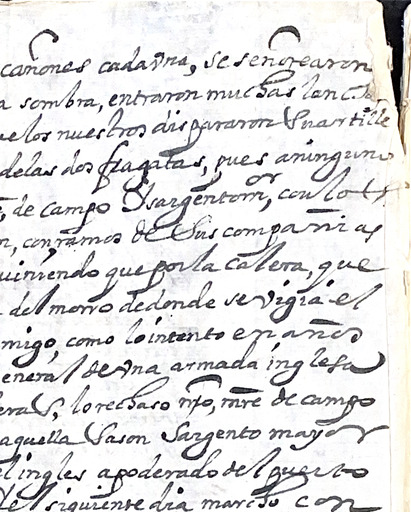 cañones cada vna, se señorearon
a sombra, entraron muchas lanch
ue los nuestros dispararon Su artille
de las dos fragatas, pues a ninguno
de campo Y sargentomor, con lo
n, con ramos de Sus compañias
uiniendo que por la calera, que
del morro de donde se vigia el
migo, como lo intento el año
eneral de vna armada inglesa
era S, lo rechaso nro, mre de campo
aquella Sason Sargento mayor
el ingles apoderado del puerto
del siguiente dia marcho con